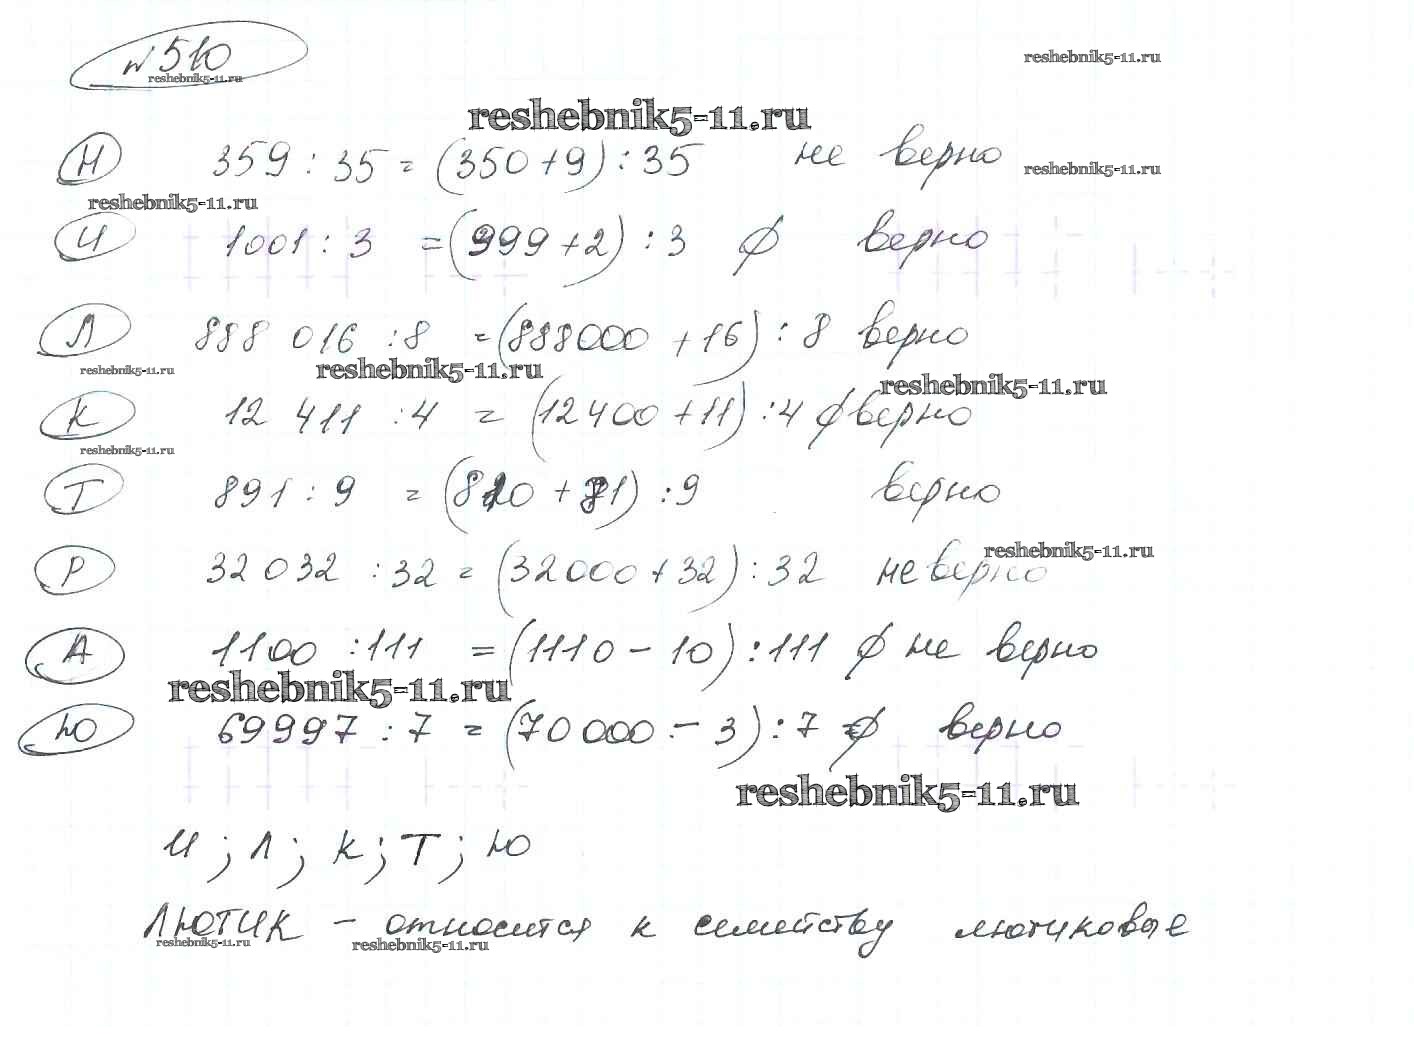 № 510
reshebnik5-11.ru
reshebnik5-11.ru
reshebnik5-11.ru
Н 359 : 35 = (350 + 9) : 35 не верно
reshebnik5-11.ru
reshebnik5-11.ru
И 1001 : 3 = (999 + 2) : 3 верно
Л 888 016 : 8 = (888000 + 16) : 8 верно
reshebnik5-11.ru
reshebnik5-11.ru
reshebnik5-11.ru
К 12 411 : 4 = (12400 + 11) : 4 верно
reshebnik5-11.ru
Т 891 : 9 = (810 + 81) : 9 верно
reshebnik5-11.ru
Р 32 032 : 32 = (32000 + 32) : 32 не верно
А 1100 : 111 = (1110 - 10) : 111 не верно
reshebnik5-11.ru
Ю 69997 : 7 = (70 000 - 3) : 7 верно
reshebnik5-11.ru
И ; Л ; К ; Т ; Ю
ЛЮТИК – относится к семейству лютиковые
reshebnik5-11.ru
reshebnik5-11.ru